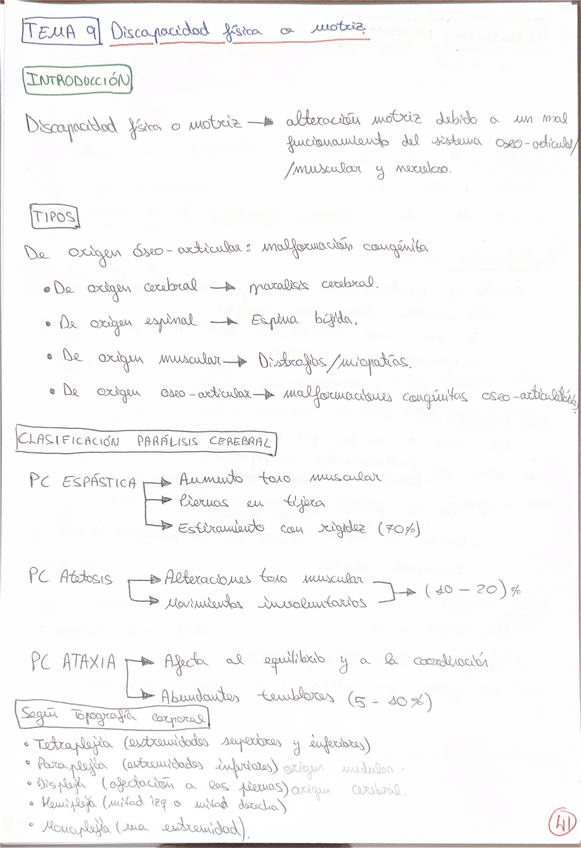 TEMA 9 Discapacidad física o motriz.
INTRODUCCIÓN
Discapacidad física o motriz → alteración motriz debido a un mal
funcionamiento del sistema oseo-articular/
/muscular y nervioso.
TIPOS
De origen óseo-articular: malformación congénita
• De origen cerebral → paralisis cerebral.
• De origen espinal → Espina bífida.
• De origen muscular → Distrofias/miopatías.
• De origen oseo-articular → malformaciones congénitas oseo-articulares
CLASIFICACIÓN PARÁLISIS CEREBRAL
PC ESPÁSTICA → Aumento tono muscular
→ Piernas en tijera
→ Estiramiento con rigidez (70%)
PC Atetosis → Alteraciones tono muscular
→ Movimientos involuntarios → (10 - 20)%
PC ATAXIA → Afecta al equilibrio y a la coordinación
→ Abundantes temblores (5 - 10%)
Según topografía corporal
• Tetraplejía (extremidades superiores y inferiores)
• Paraplejía (extremidades inferiores) origen medular.
• Displejía (afectación a las piernas) origen cerebral.
• Hemiplejía (mitad izq o mitad derecha)
• Monoplejía (una extremidad).
41